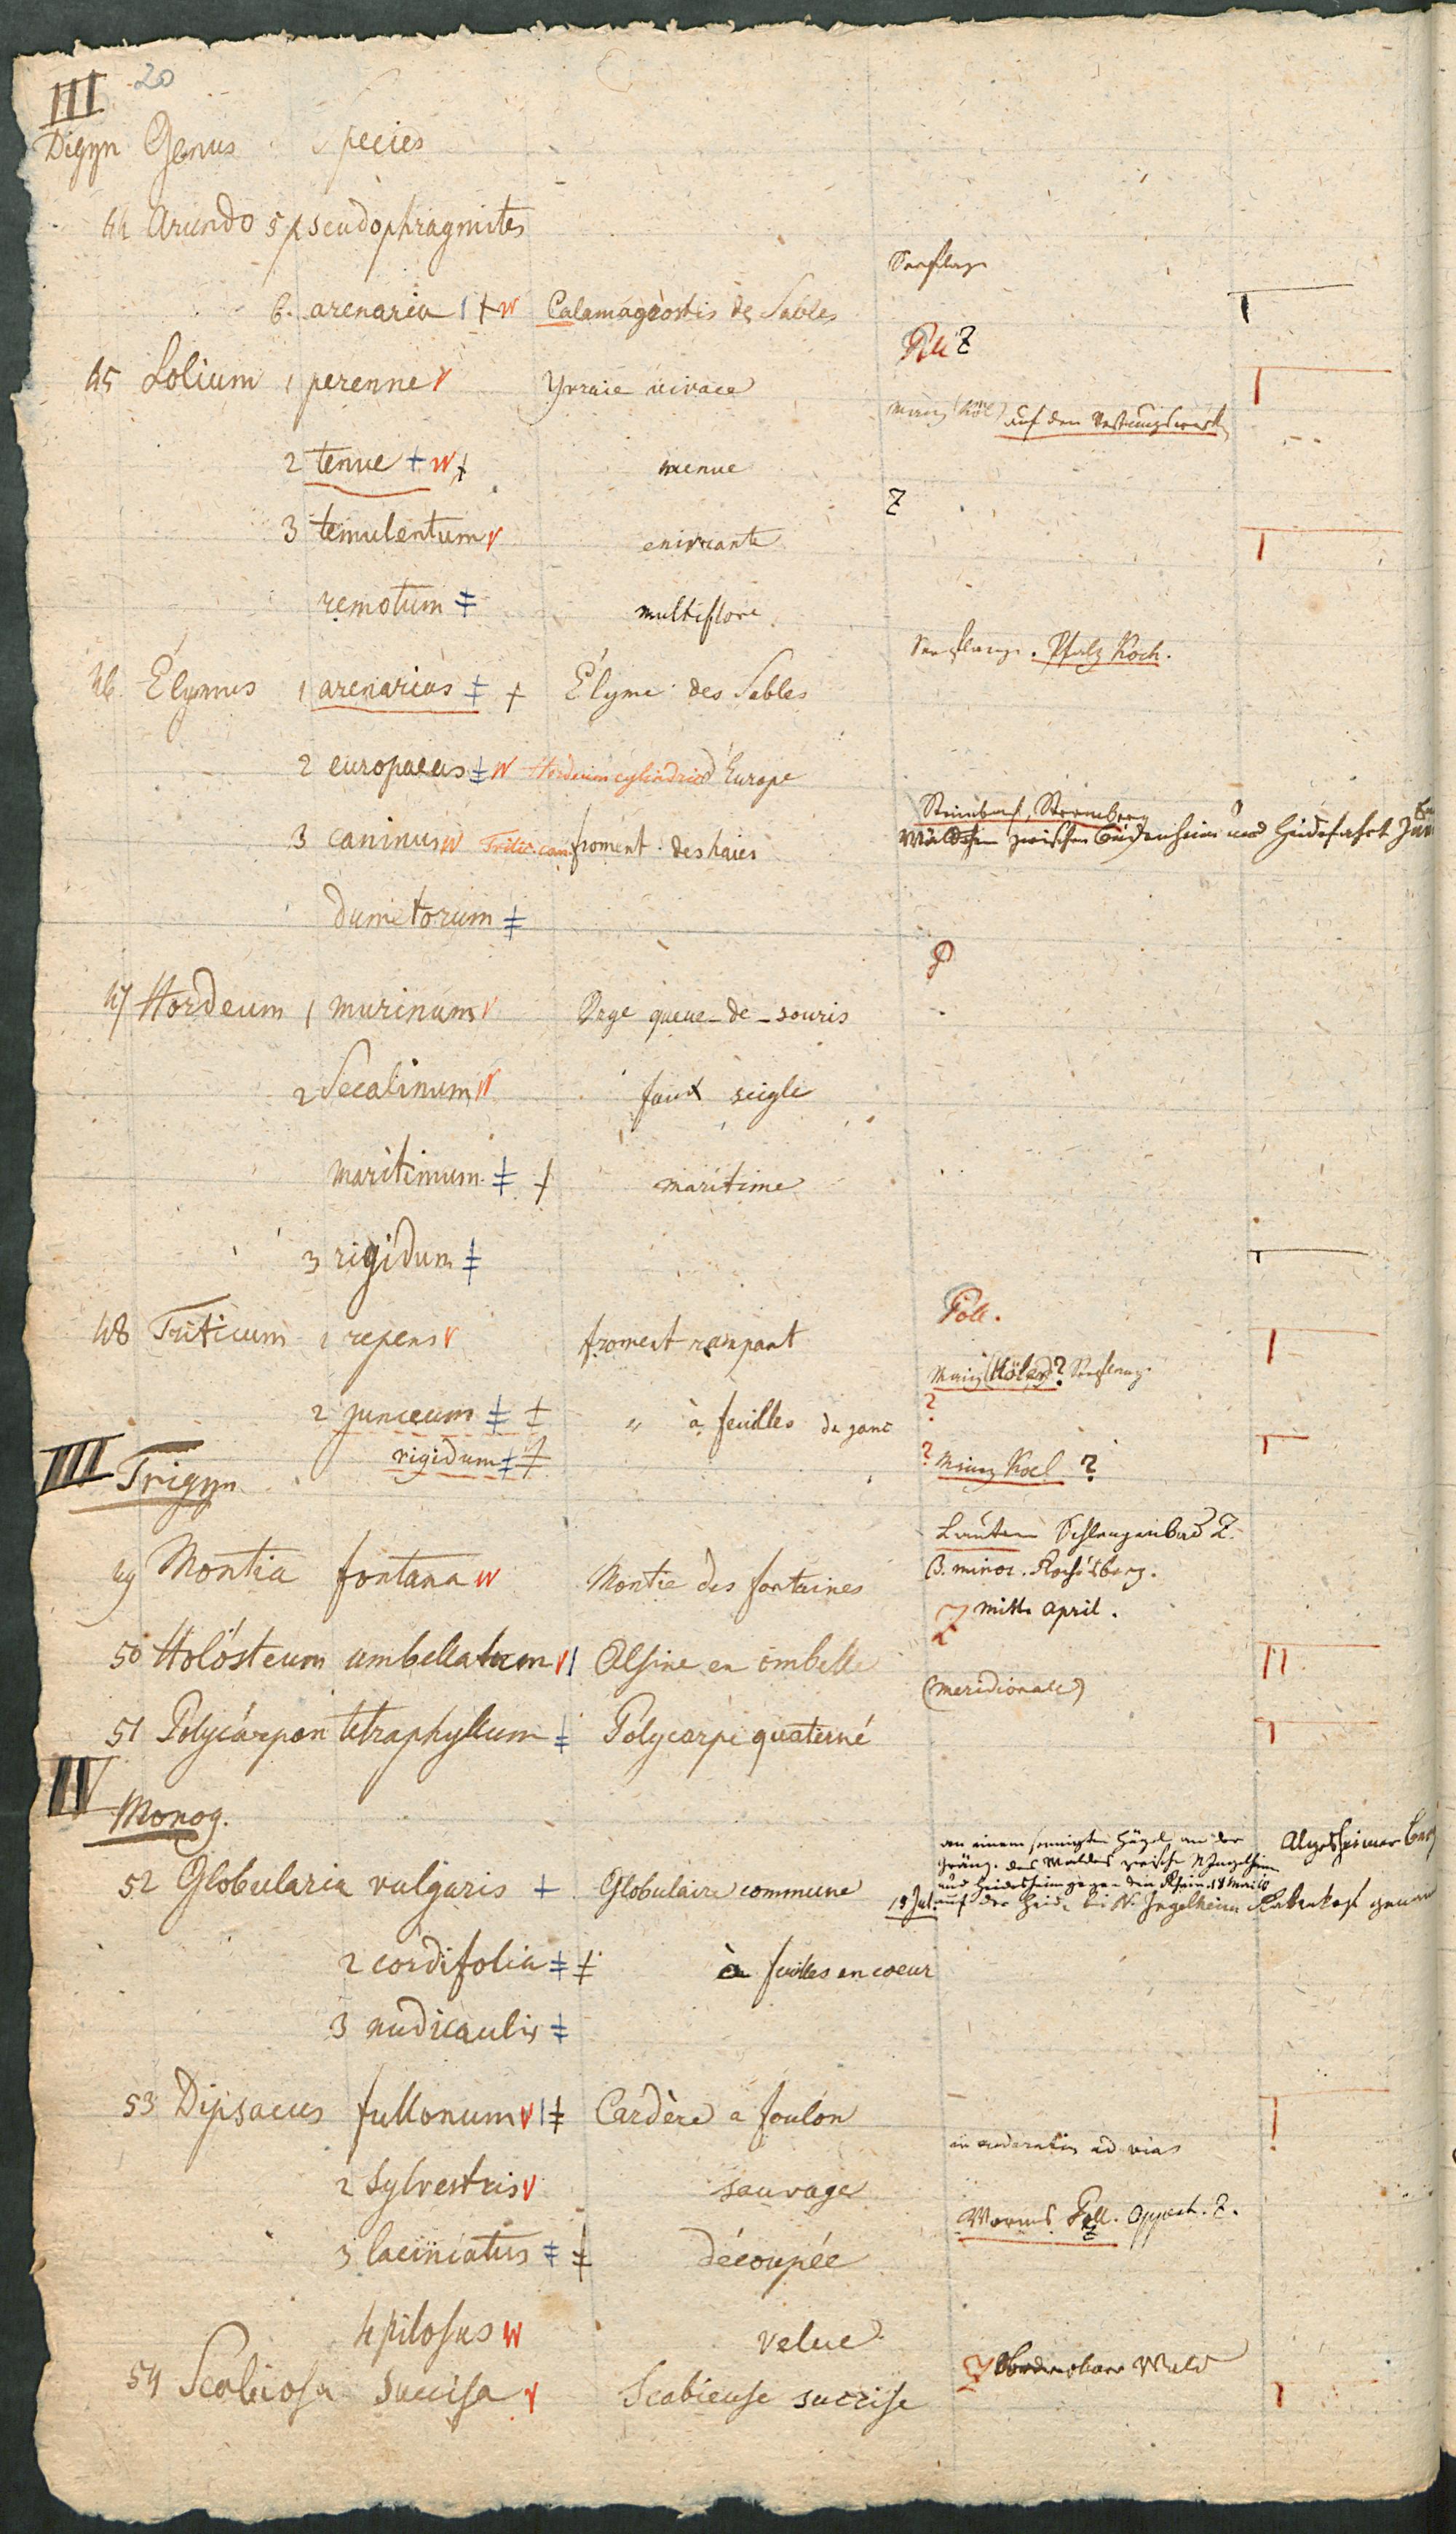 20
III
Digyn Genus Species
44 Arundo 5 pseudophragmites
6. arenaria | + w Calamagrostis des Sables
Poll Z
45 Lolium 1 perenne v Yvraie vivace
auf den Vestungswerk
2 tenue + w + menue
Z
3 temulentum v enivrante
remotum ‡ multiflore
Pfalz Koch.
46 Élymus 1 arenarius ‡ + Élyme des Sables
2 europaeus ‡ w Hordeum cylindric d'Europe
Steinbach, Sternberg
3 caninus w Tritic. can. froment des haies
Wäldchen zwischen Budenheim und Heidefahrt
dumetorum ‡
P
47 Hordeum 1 murinum v Orge queue-de-souris
2 Secalinum w faux seigle
maritimum ‡ + maritime
3 rigidum ‡
Poll.
48 Triticum 1 repens v froment rampant
Mainz (Köler)?
2 junceum ‡ ‡ " à feuilles de jonc ?
rigidum ‡ ‡ ? Mainz Koel ?
III Trigyn
Lautern Schlangenbad Z.
49 Montia fontana w Montie des fontaines
β. minor.
Z Mitte April.
50 Holósteum umbellatum v| Alsine en ombelle
(meridionale)
51 Polycárpon tetraphyllum ‡ Polycarpe quaterné
IV
Monog.
an einem sonnigten Hügel an der
Gränz. des Waldes zwischen N Ingelheim
und Heidesheim gegen den Rhein. 18 Mai
Algesheimer Berg
52 Globularia vulgaris + Globulaire commune
19 Jul. auf der Heide bei N. Ingelheim
2 cordifolia ‡ ‡ à feuilles en coeur
3 nudicaulis ‡
53 Dipsacus fullonum v|‡ Cardère a foulon
in ruderatis ad vias
2 sylvestris v sauvage
Worms Poll. Oppenh. Z.
3 laciniatus ‡ ‡ découpée
4 pilosus w velue
Wald
54 Scabiosa succisa v Scabieuse succise